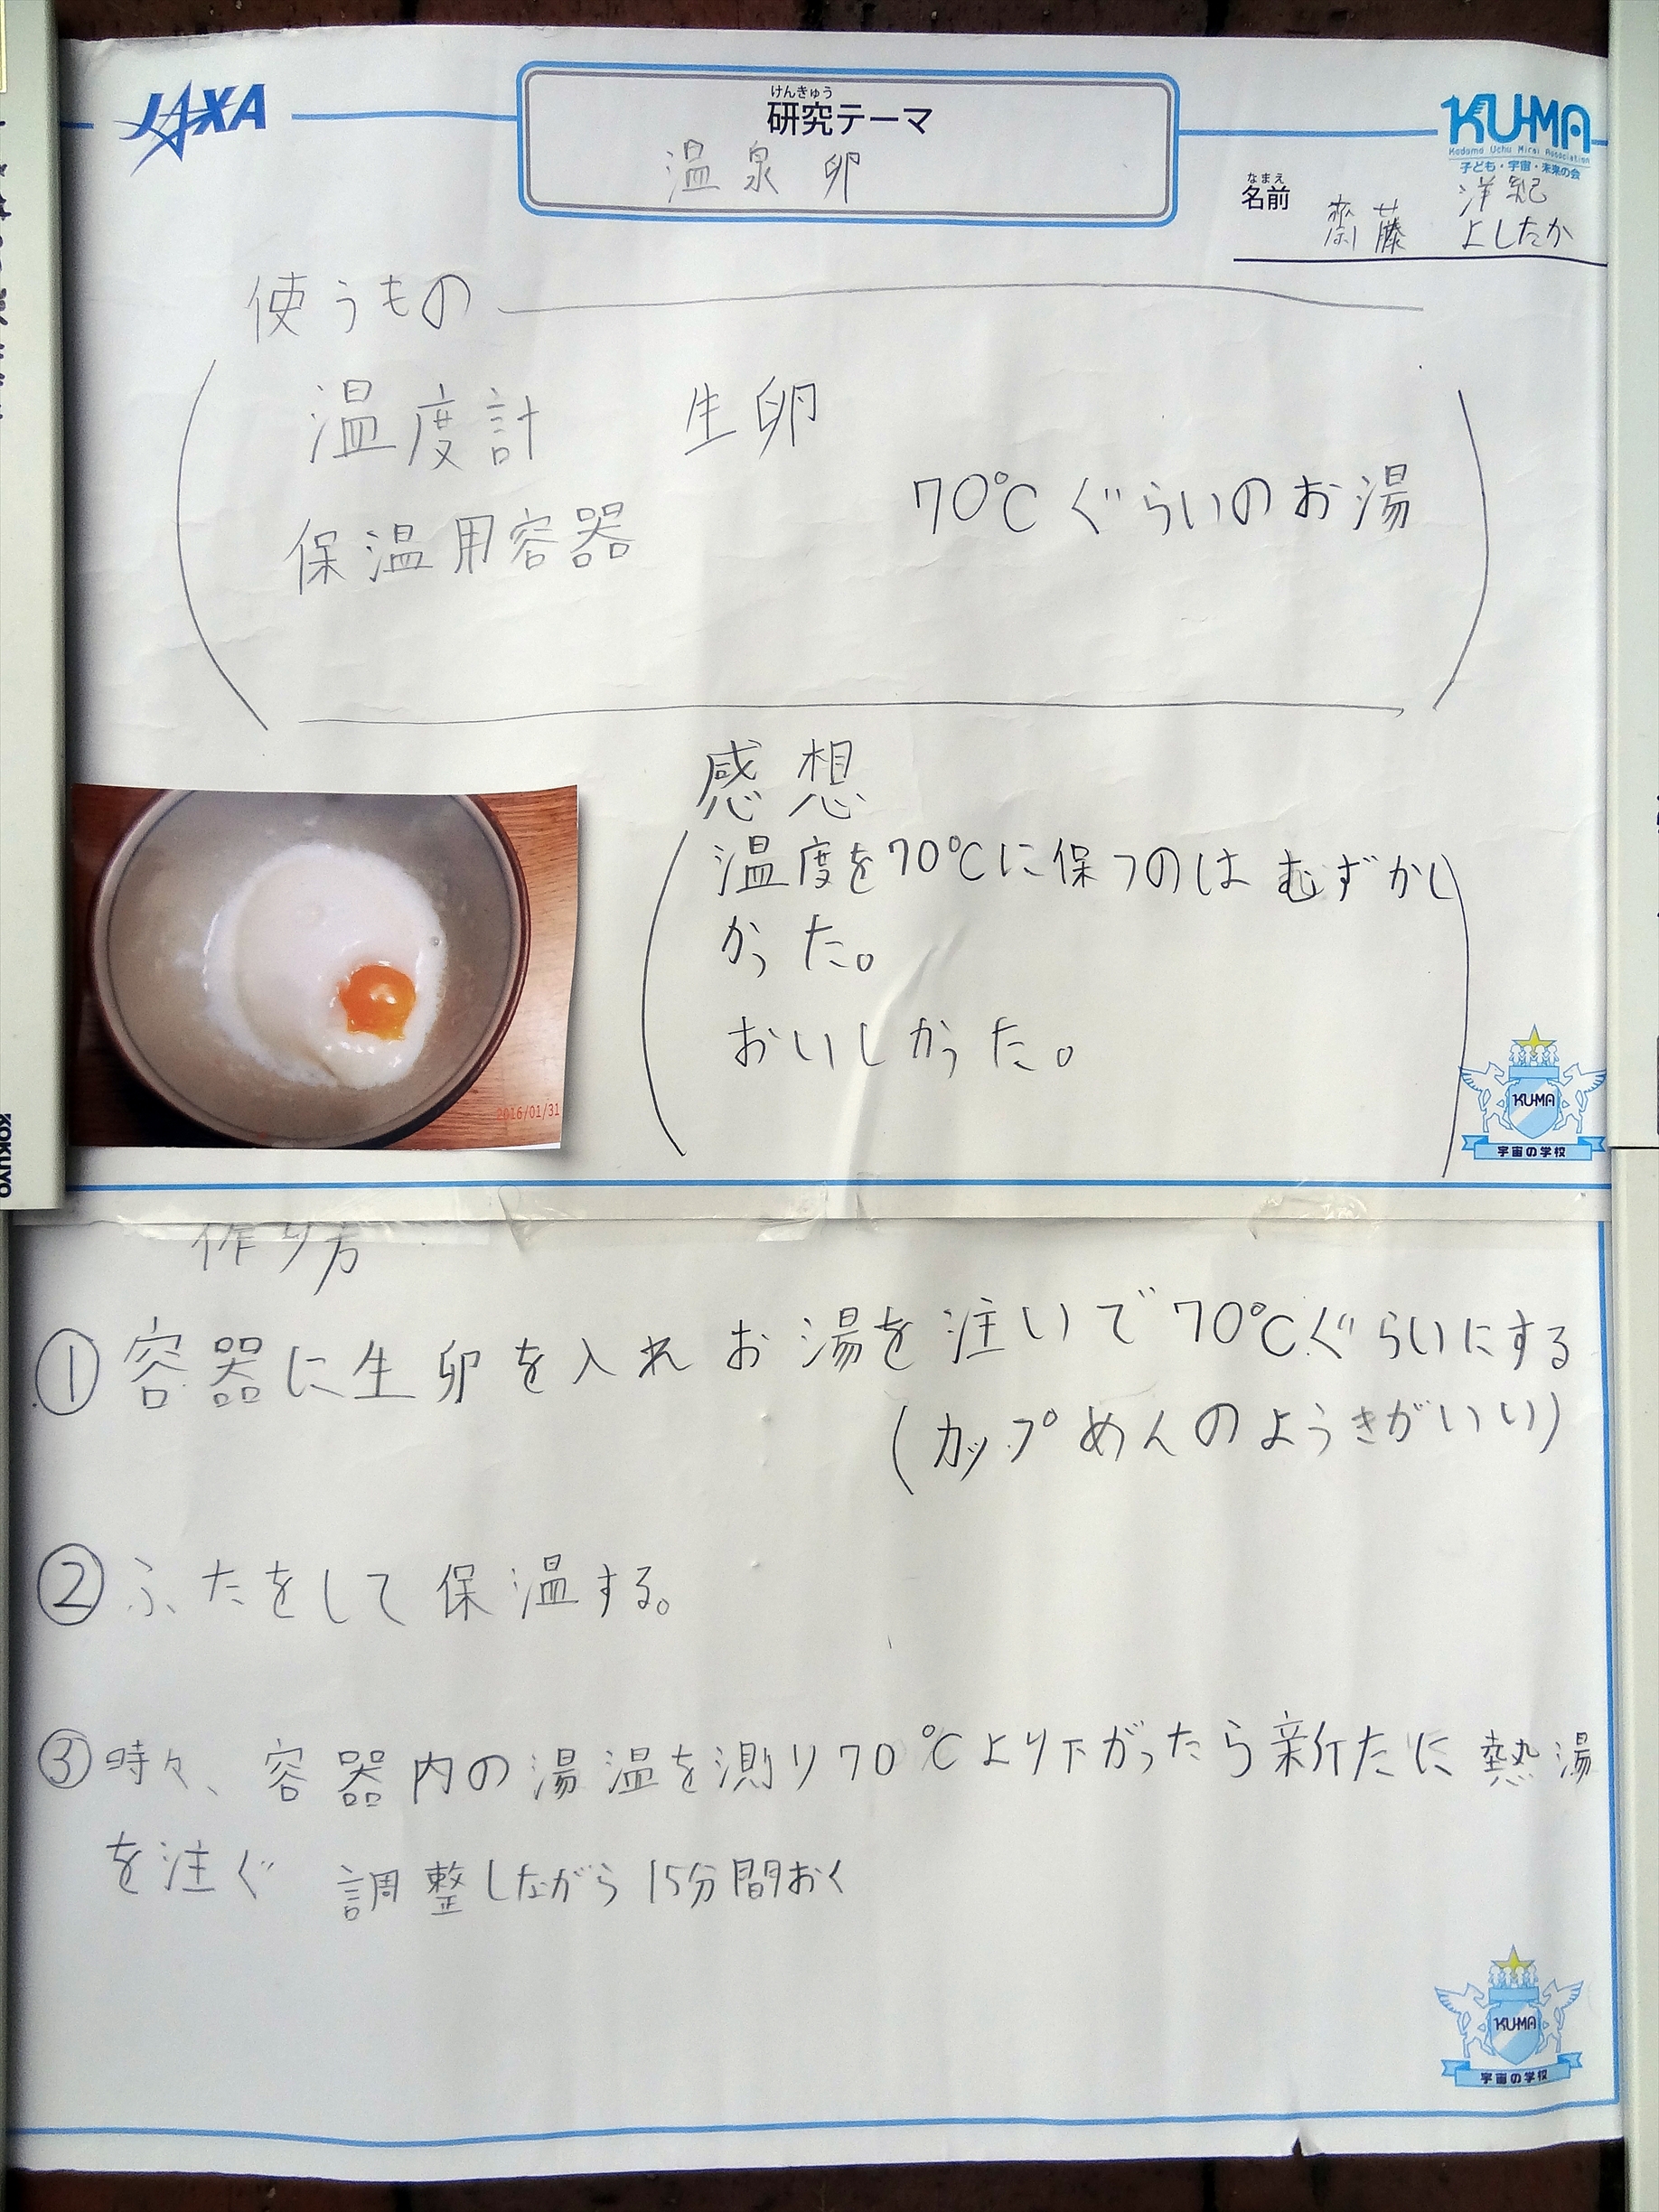 JAXA
けんきゅう
研究テーマ
温泉卵
KU-MA
Kodomo Uchu Mirai Association
子ども・宇宙・未来の会
なまえ
名前
齋藤 洋紀
よしたか
使うもの
温度計 生卵
70℃ぐらいのお湯
保温用容器
感想
温度を70℃に保つのはむずかし
かった。
おいしかった。
2016/01/31
KU-MA
宇宙の学校
KOKUYO
作り方
① 容器に生卵を入れお湯を注いで70℃ぐらいにする
(カップめんのようきがいい)
② ふたをして保温する。
③ 時々、容器内の湯温を測り70℃より下がったら新たに熱湯
を注ぐ 調整しながら15分間おく
KU-MA
宇宙の学校